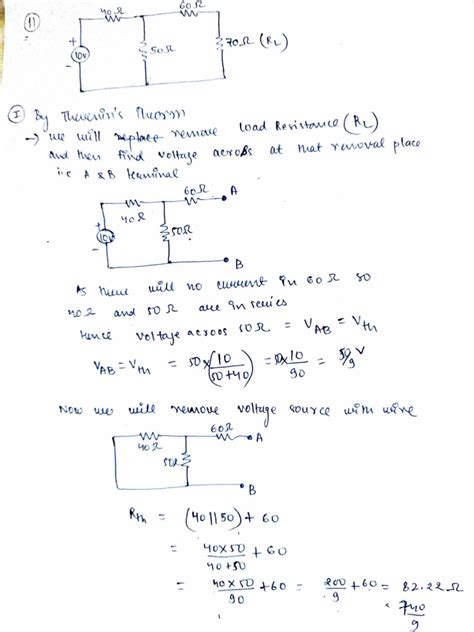 11
40Ω
60Ω
+
10V
-
50Ω
70Ω (RL)
I By Thevenin's Theorem
→ we will replace remove Load Resistance (RL)
and then find voltage across at that removal place
i.e A & B terminal
60Ω
A
40Ω
10V
50Ω
B
As there will no current in 60Ω so
40Ω and 50Ω are in series
Hence voltage across 50Ω = VAB = Vth
VAB = Vth = 50×(10/50+40) = 50×10/90 = 50/9 V
Now we will remove voltage source with wire
60Ω
A
40Ω
50Ω
B
Rth = (40||50) + 60
= 40×50/40+50 + 60
= 40×50/90 + 60 = 200/9 + 60 = 82.22Ω
= 740/9